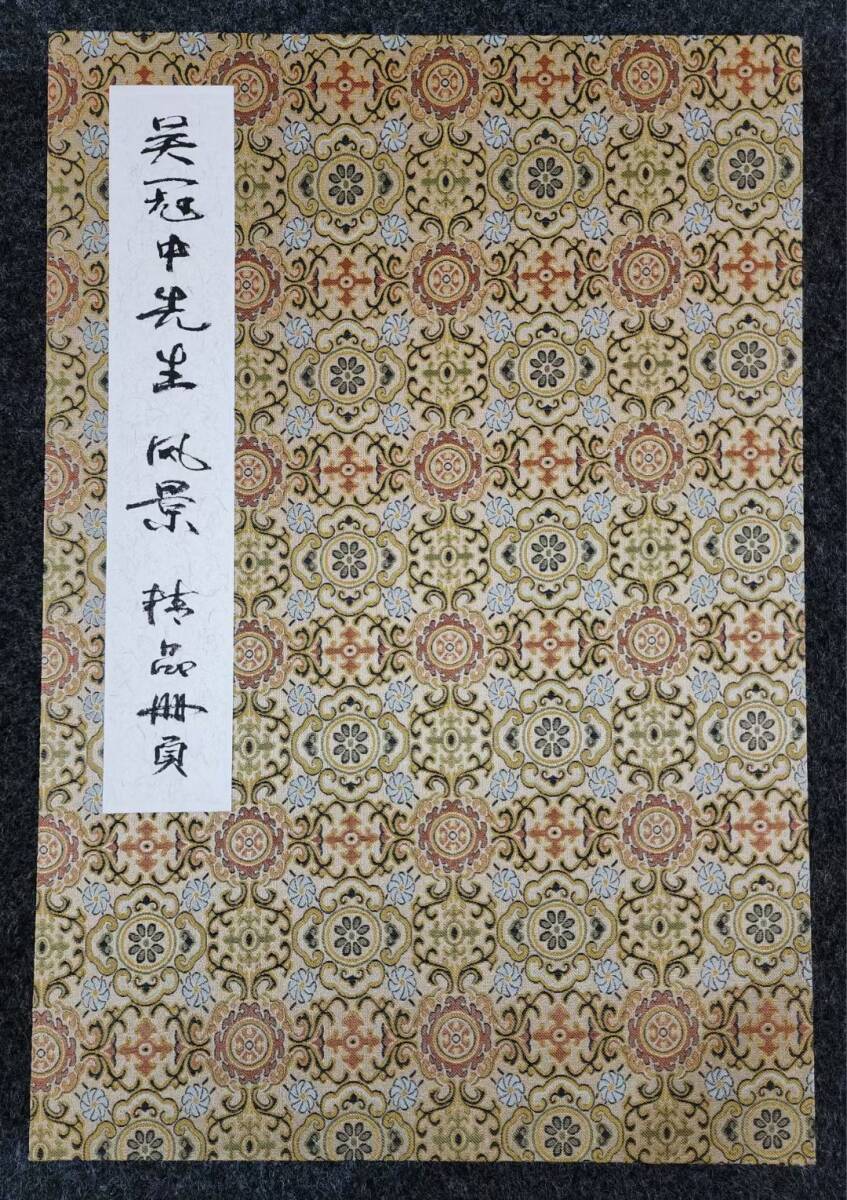 吴冠中先生 风景 精品册页